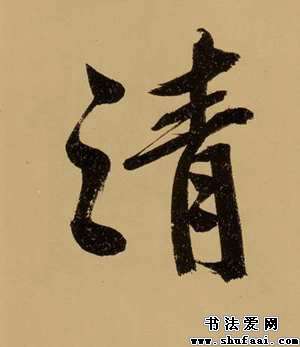 清
书法爱网
www.shufaai.com